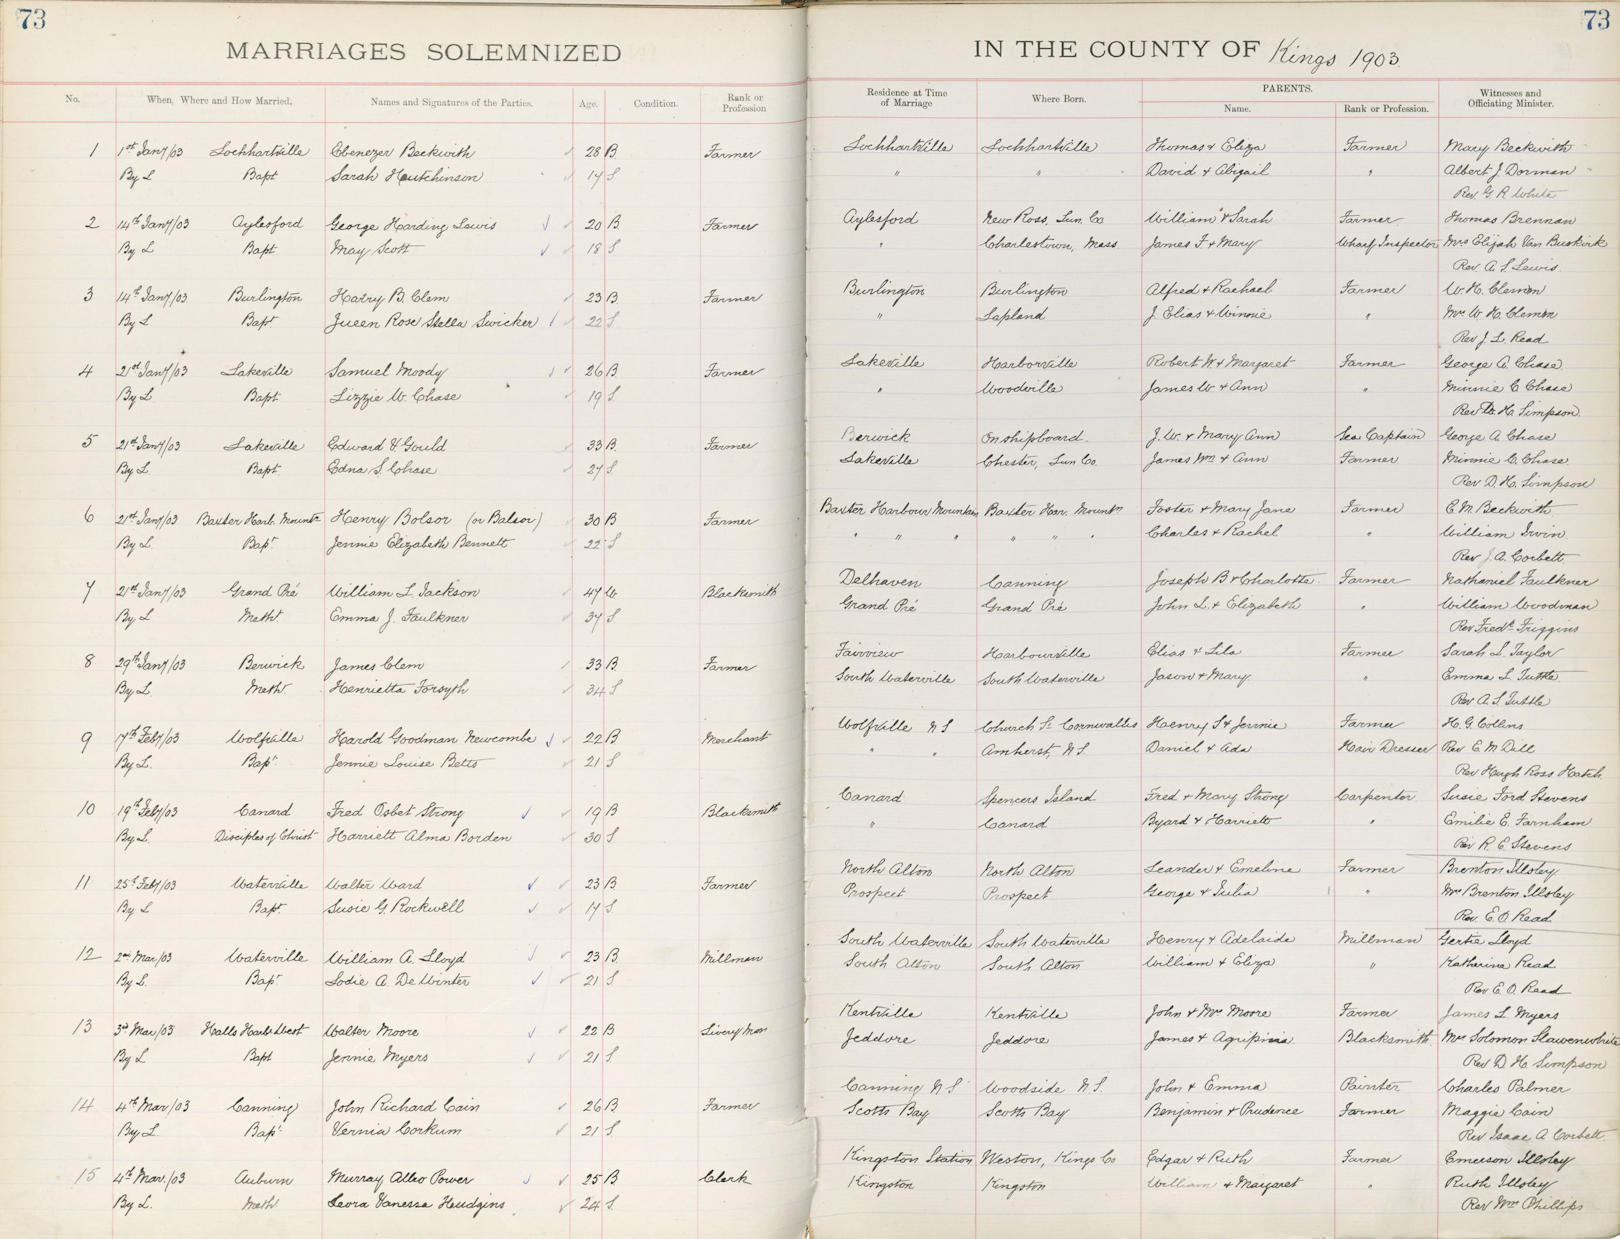 73
73
MARRIAGES SOLEMNIZED
IN THE COUNTY OF Kings 1903
No. When, Where and How Married, Names and Signatures of the Parties. Age. Condition. Rank or Profession Residence at Time of Marriage Where Born. PARENTS. Name. Rank or Profession. Witnesses and Officiating Minister.
1 1st Jany/03 Lochhartville Ebenezer Beckwith 28 B. Farmer Lochhartville Lochhartville Thomas & Eliza Farmer Mary Beckwith
By L Bapt Sarah Hutchinson 17 S " " David & Abigail " Albert J Dorman
Rev G. R. White
2 14th Jany/03 Aylesford George Harding Lewis 20 B. Farmer Aylesford New Ross, Lun. Co William & Sarah Farmer Thomas Brennan
By L Bapt May Scott 18 S " Charlestown, Mass James F & Mary Wharf Inspector Mrs Elijah Van Buskirk
Rev A. S. Lewis
3 14th Jany/03 Burlington Harry B. Clem 23 B. Farmer Burlington Burlington Alfred & Rachael Farmer W. H. Clemon
By L Bapt. Queen Rose Stella Swicker 22 S " Lapland J. Elias & Winnie " Mrs W H. Clemon
Rev J. L. Read
4 21st Jany/03 Lakeville Samuel Moody 26 B Farmer Lakeville Harborville Robert W & Margaret Farmer George A. Chase
By L Bapt. Lizzie W. Chase 19 S. " Woodville James W. & Ann " Minnie C Chase
Rev D. H. Simpson
5 21st Jany/03 Lakeville Edward V Gould 33 B. Farmer Berwick On shipboard. J. W. & Mary Ann Sea Captain George A Chase
By L. Bapt Edna S. Chase 27 S Lakeville Chester, Lun Co. James Wm & Ann Farmer Minnie C. Chase
Rev D. H. Simpson
6 21st Jany/03 Baxter Harb. Mountn Henry Bolsor (or Balsor) 30 B Farmer Baxter Harbour Mountain Baxter Har. Mountn Foster & Mary Jane Farmer E. M. Beckwith
By L. Bapt. Jennie Elizabeth Bennett 22 S " " " " " " Charles & Rachel " William Irvin
Rev J. A. Corbett
7 21st Jany/03 Grand Pré William L. Jackson 47 W Blacksmith Delhaven Canning Joseph B & Charlotte Farmer Nathaniel Faulkner
By L Meth. Emma J. Faulkner 37 S Grand Pré Grand Pré John L. & Elizabeth " William Woodman
Rev Fredk Friggins
8 29th Jany/03 Berwick James Clem 33 B. Farmer Fairview Harbourville Elias & Lila Farmer Sarah L. Taylor
By L Meth. Henrietta Forsyth 34 S South Waterville South Waterville Jason & Mary " Emma L Tuttle
Rev A. S. Tuttle
9 17th Feby/03 Wolfville Harold Goodman Newcombe 22 B Merchant Wolfville N S Church St. Cornwallis Henry S & Jennie Farmer H. G. Collins
By L. Bapt. Jennie Louise Betts 21 S " " Amherst, N.S. Daniel & Ada Hair Dresser Rev E. M Dill
Rev Hugh Ross Hatch
10 19th Feby/03 Canard Fred Osbet Strong 19 B Blacksmith Canard Spencers Island Fred & Mary Strong Carpenter Susie Ford Stevens
By L. Disciples of Christ Harriett Alma Borden 30 S " Canard Byard & Harriett " Emilie E. Farnham
Rev R. E Stevens
11 25th Feby/03 Waterville Walter Ward 23 B Farmer North Alton North Alton Leander & Emeline Farmer Brenton Illsley
By L Bapt. Susie G. Rockwell 17 S. Prospect Prospect George & Julia " Mrs Brenton Illsley
Rev. E. O Read
12 2nd Mar/03 Waterville William A. Lloyd 23 B. Millman South Waterville South Waterville Henry & Adelaide Millman Gertie Lloyd
By L. Bapt. Sadie A. DeWinter 21 S South Alton South Alton William & Eliza " Katherine Read
Rev E. O. Read
13 3rd Mar/03 Halls Harb. West Walter Moore 22 B Livery Man Kentville Kentville John & Mrs Moore Farmer James L Myers
By L Bapt Jennie Myers 21 S Jeddore Jeddore James & Agripinia Blacksmith. Mrs Solomon Slawenwhite
Rev D. H. Simpson
14 4th Mar/03 Canning John Richard Cain 26 B Farmer Canning N S Woodside N. S. John & Emma Painter Charles Palmer
By L. Bapt. Vernia Corkum 21 S Scotts Bay Scotts Bay Benjamin & Prudence Farmer Maggie Cain
Rev Isaac A Corbett
15 4th Mar./03 Auburn Murray Alleo Power 25 B Clerk Kingston Station Weston, Kings Co Edgar & Ruth Farmer Emerson Illsley
By L. Meth. Leora Vanessa Hudgins 24 S. Kingston Kingston William & Margaret " Ruth Illsley
Rev Wm Phillips